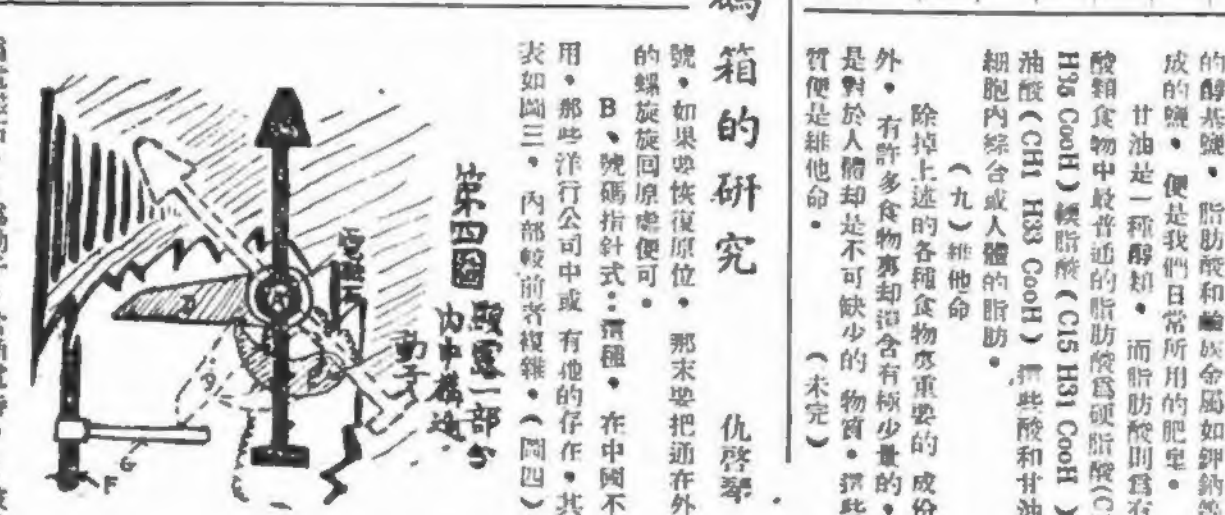 的醇基鹽。脂肪酸和鹼族金屬如鉀鈉等
成的鹽。便是我們日常所用的肥皂。
甘油是一種醇類。而脂肪酸則爲有
酸類食物中最普通的脂肪酸爲硬脂酸(C
H35 CooH)
油酸(CH1 H33 CooH)
脂酸(C15 H31 CooH)
這些酸和甘油
細胞內綜合或人體的脂肪。
(九)維他命
除掉上述的各種食物裏重要的成份
外。有許多食物裏却還含有極少量的。
是對於人體却是不可缺少的物質。這些
質便是維他命。 (未完)
碼箱的研究
仇啓琴
號。如果要恢復原位。那末要把通在外
的螺旋旋回原處便可。
B、號碼指針式：這種。在中國不
用。那些洋行公司中或有他的存在。其
表如圖三。內部較前者複雜。(圖四)
第四圖
內中構造
A
D
D
G
F